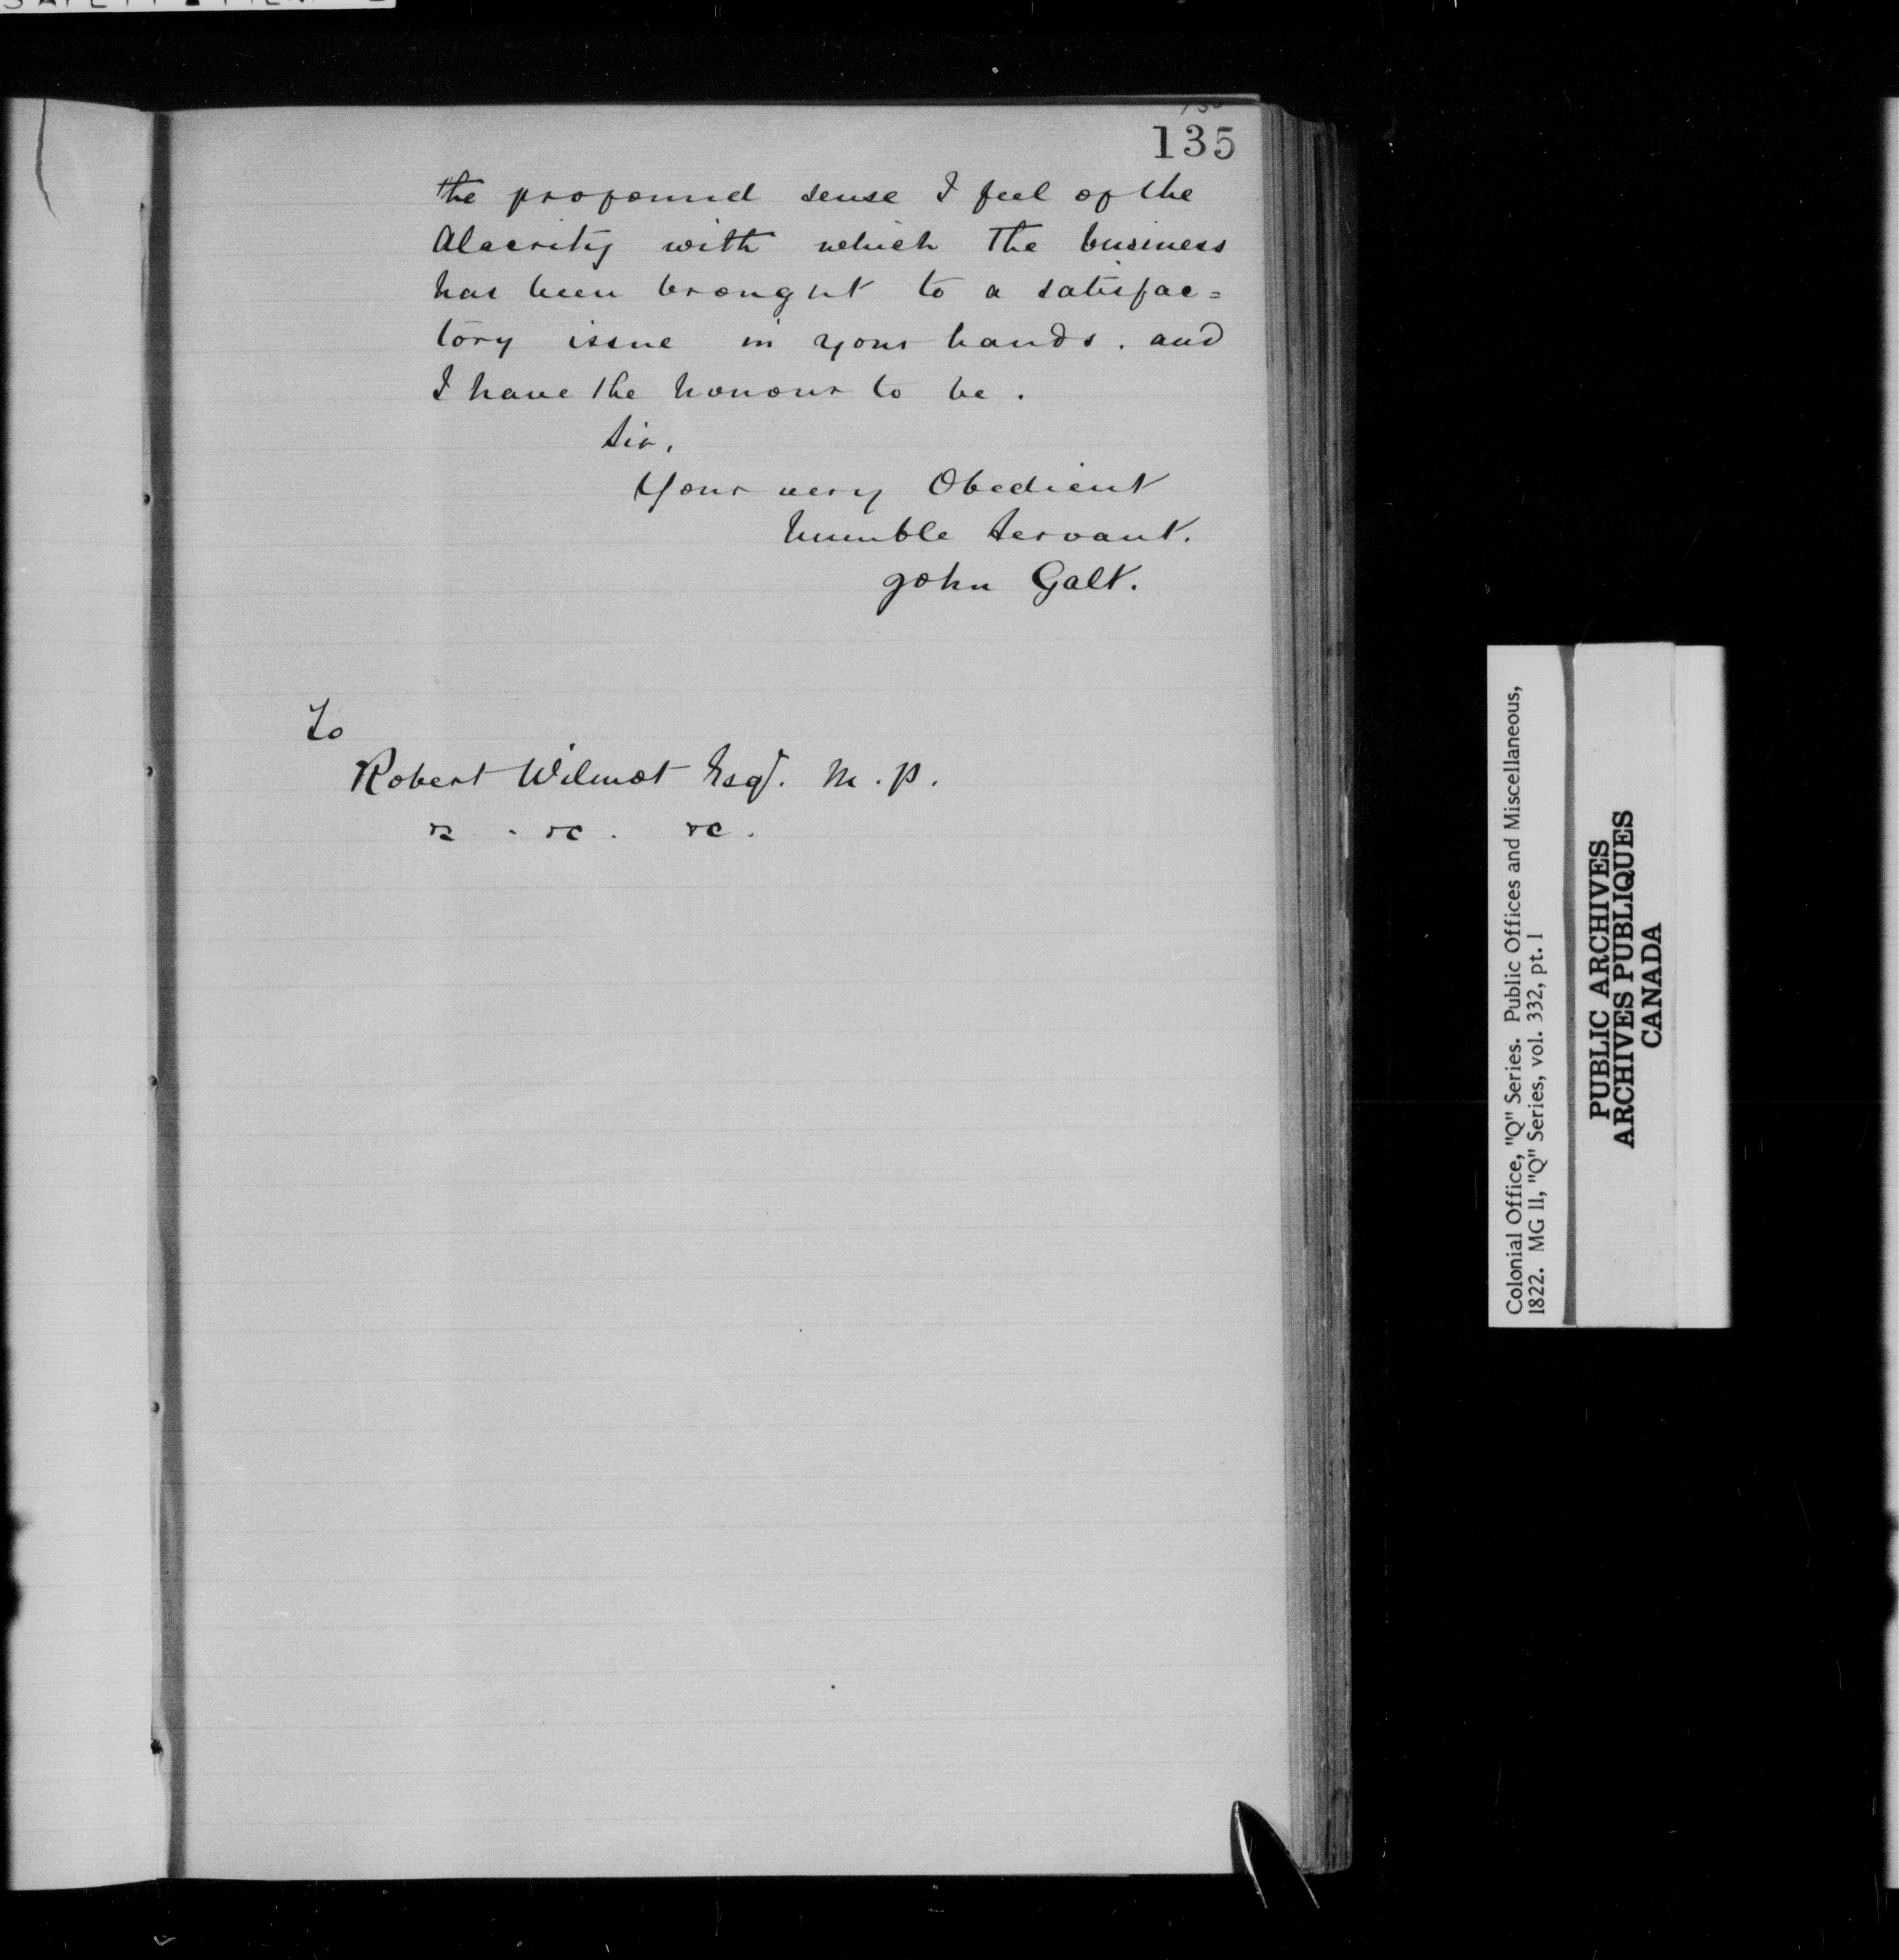 135
the profound sense I feel of the
Alacrity with which The business
has been brought to a satisfac=
tory issue in your hands. and
I have the honour to be.
Sir,
Your very Obedient
humble Servant.
John Galt.
To
Robert Wilmot Esqr. M.P.
&c. &c. &c.
Colonial Office, "Q" Series. Public Offices and Miscellaneous,
1822. MG 11, "Q" Series, vol. 332, pt. 1
PUBLIC ARCHIVES
ARCHIVES PUBLIQUES
CANADA